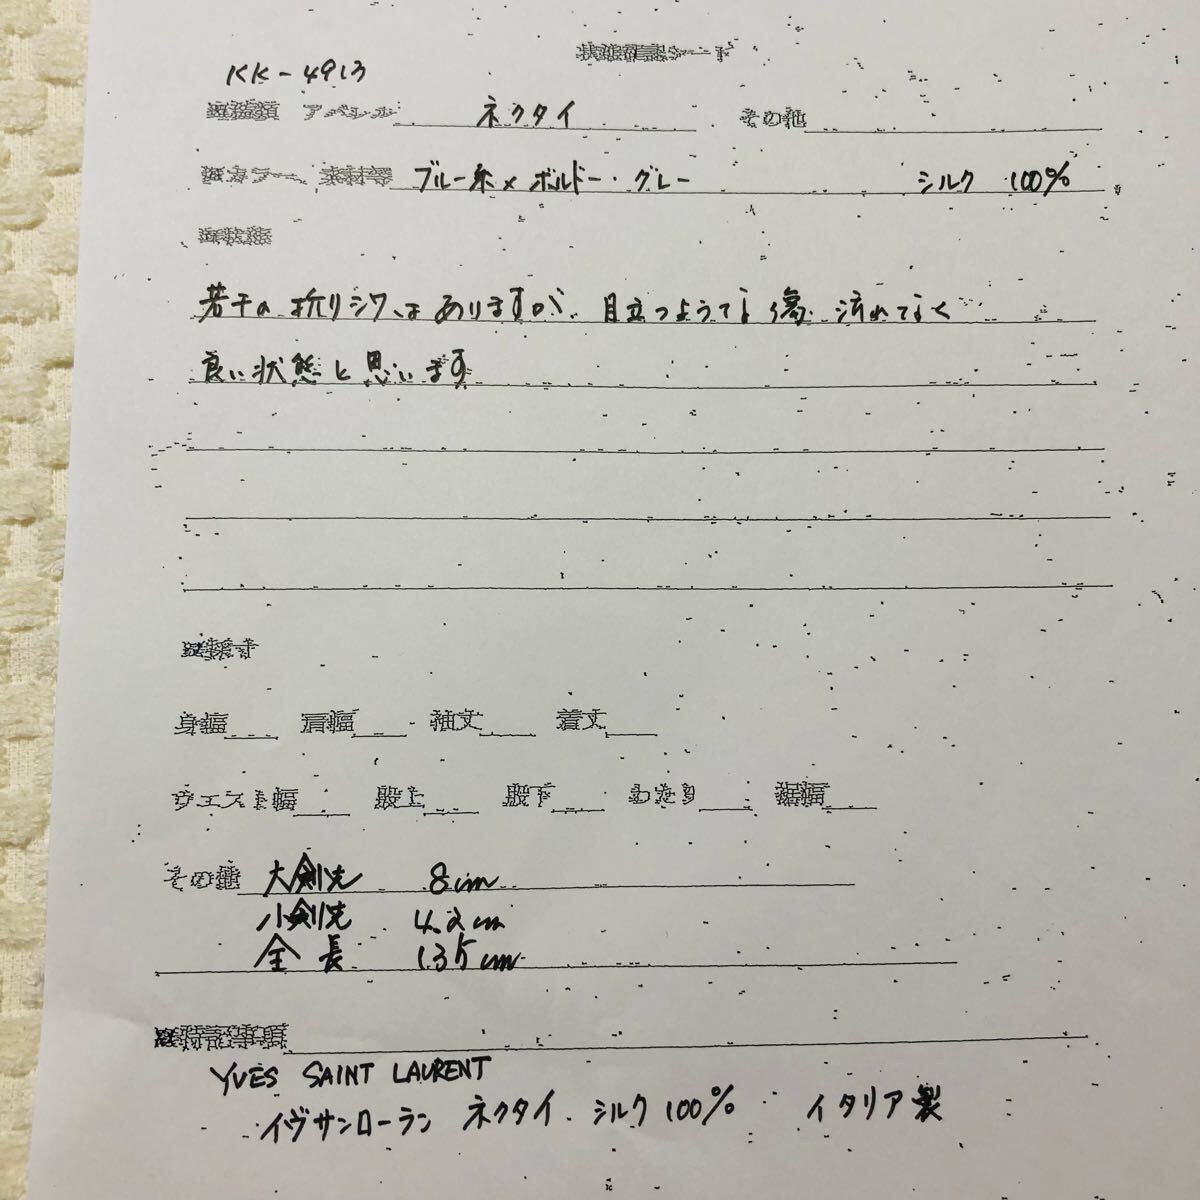 状態確認シート
KK-4913
■種類 アパレル ネクタイ その他
■カラー、素材等 ブルー系×ボルドー・グレー シルク 100%
■状態
若干の折りシワはありますが、目立つような傷、汚れなく
良い状態と思います
■採寸
身幅 肩幅 袖丈 着丈
ウエスト幅 股上 股下 わたり 裾幅
その他 大剣先 8cm
小剣先 4.2cm
全長 135cm
■特記事項
YVES SAINT LAURENT
イヴサンローラン ネクタイ. シルク100% イタリア製